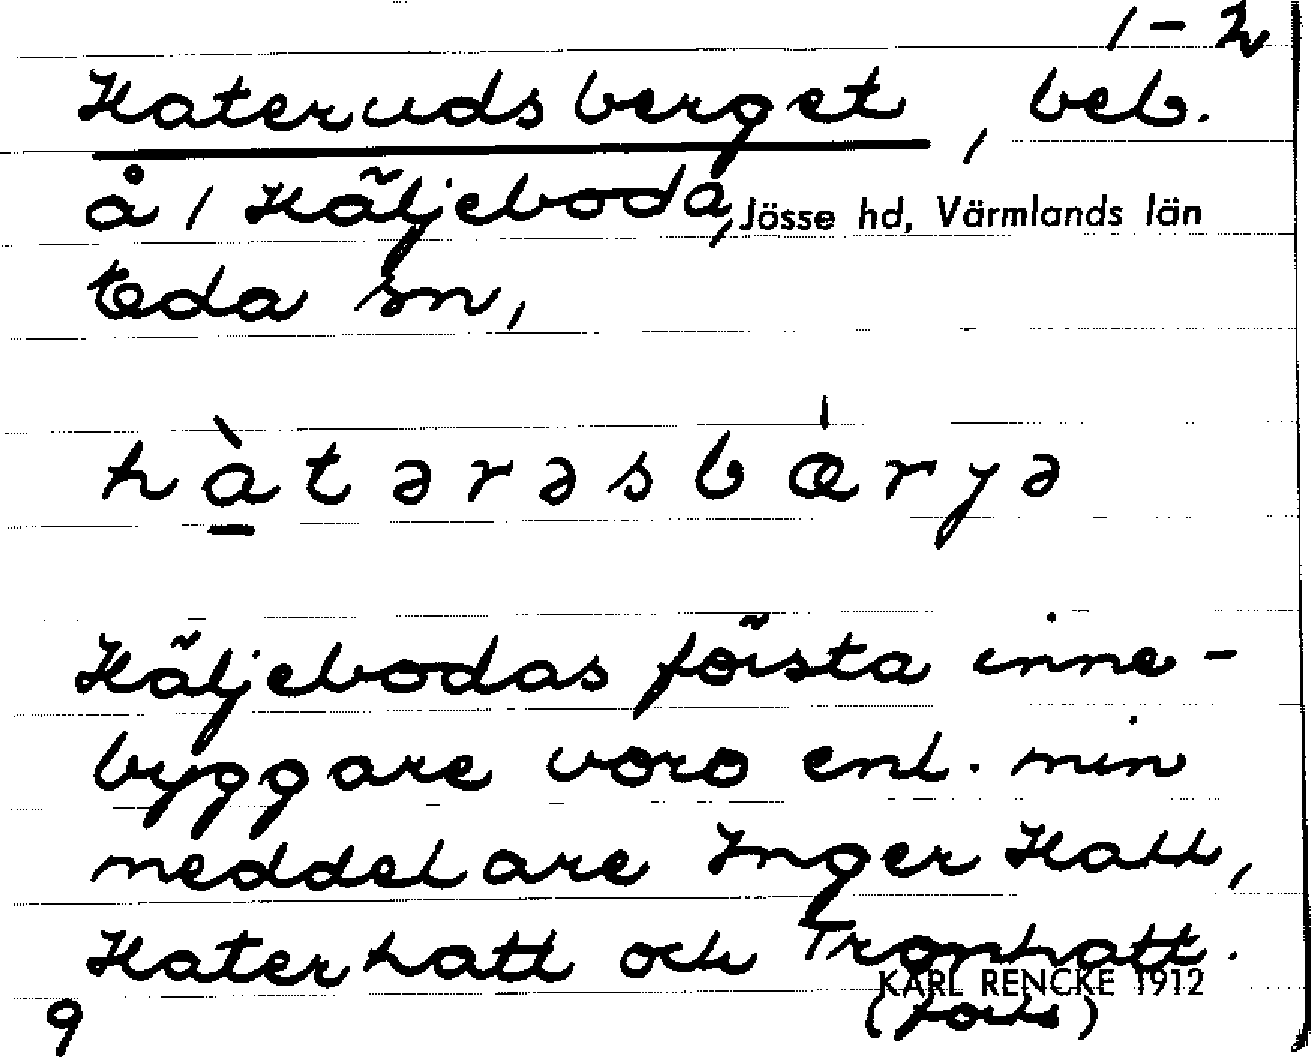 1-2
Haterudsberget, beb.
å / Häljeboda, Jösse hd, Värmlands län
Eda sn,
hà̱tərəsbǽryə
Häljebodas första inne-
byggare voro enl. min
meddelare Inger Hatt,
Haterhatt och Tronhatt.
KARL RENCKE 1912
9 (forts)